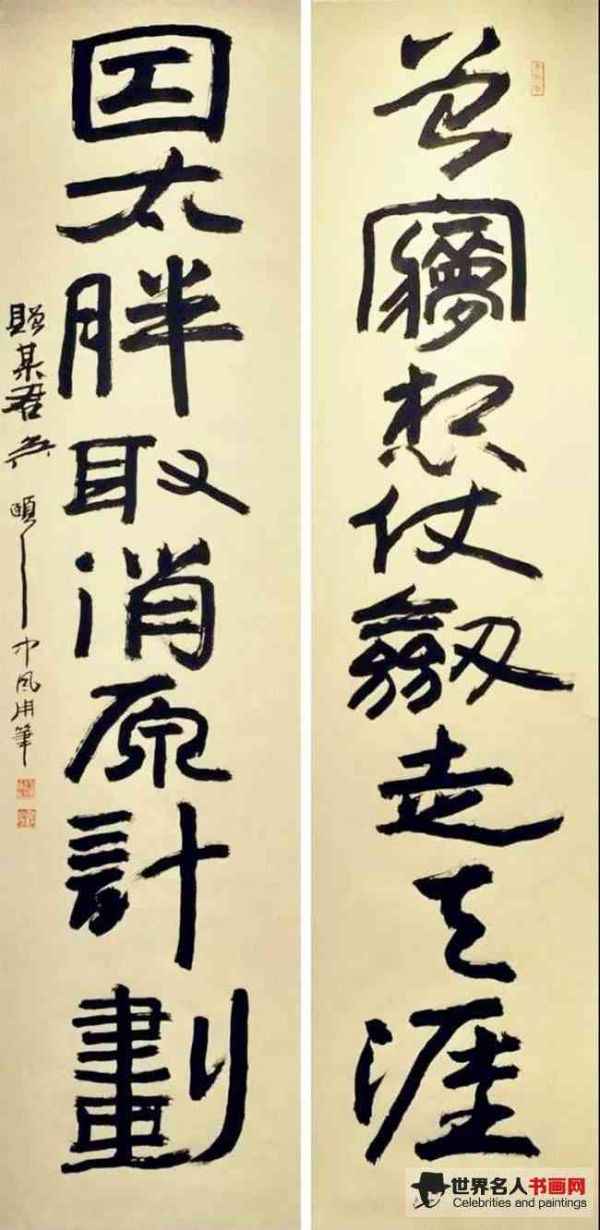 曾夢想仗劔走天涯
因太胖取消原計劃
贈某君
中风用筆
世界名人书画网
Celebrities and paintings